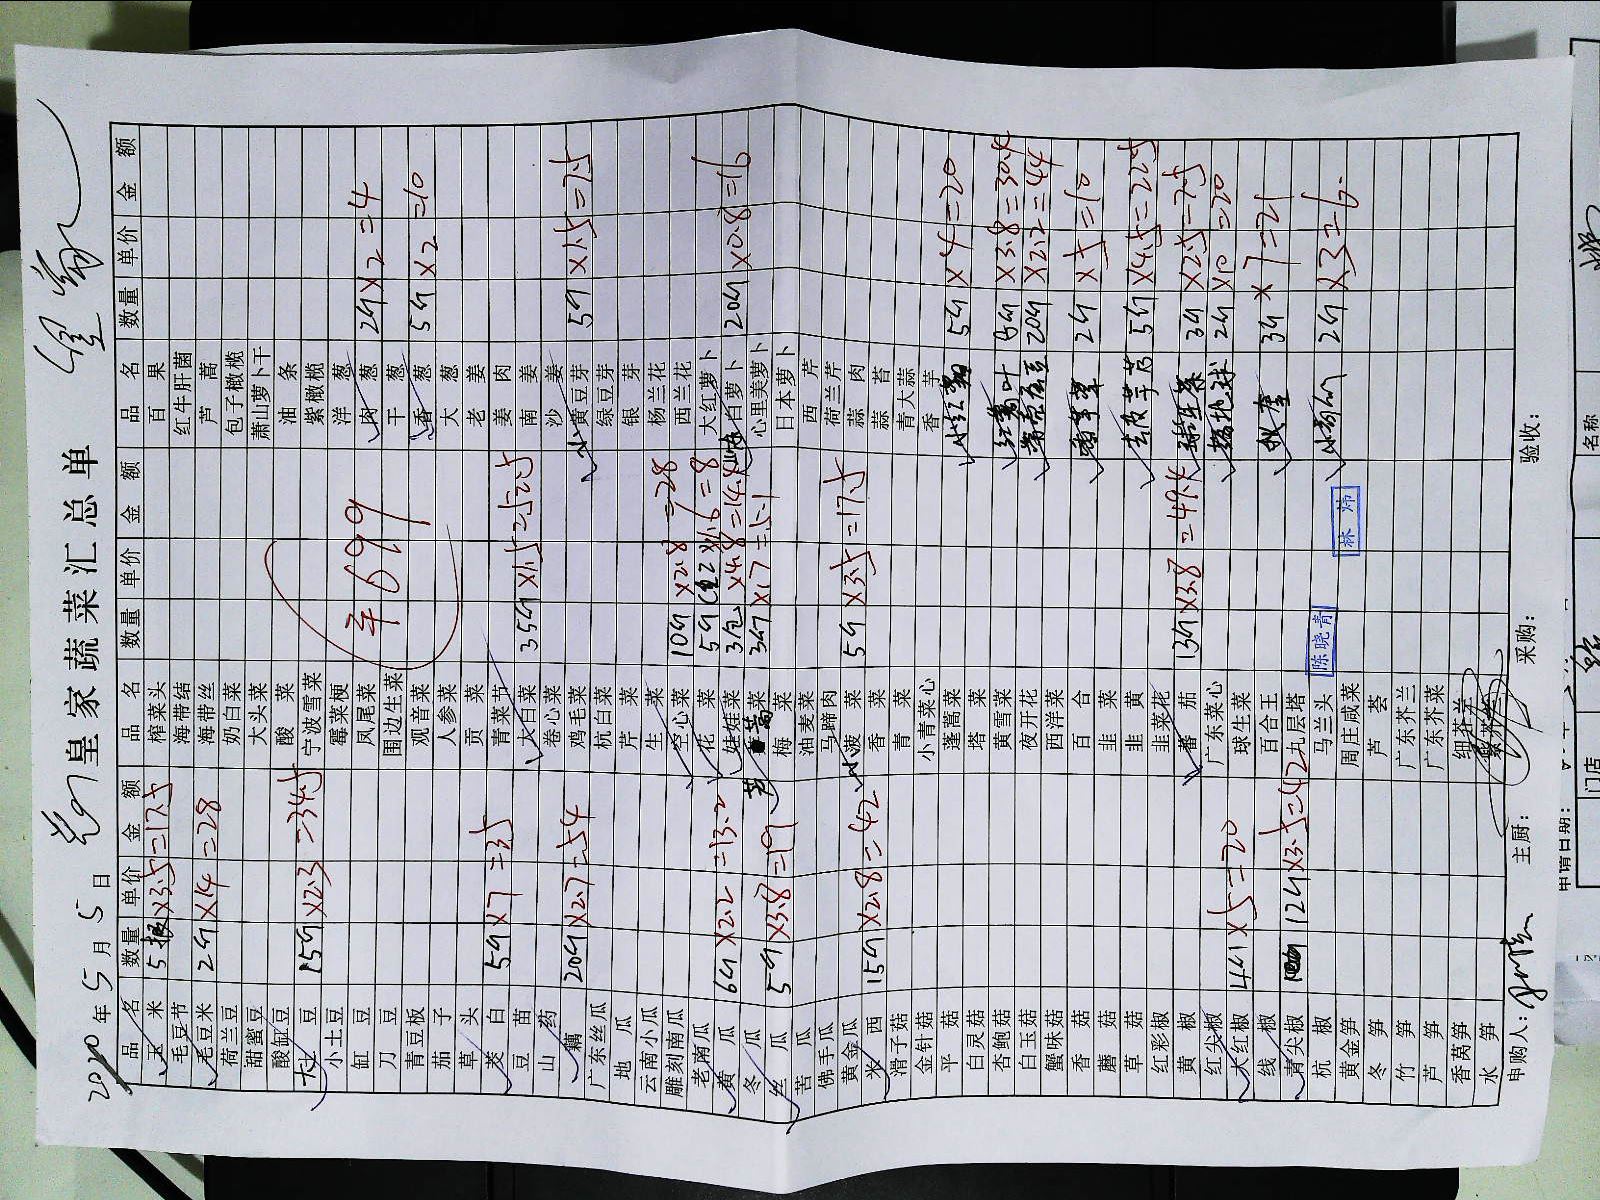 皇家蔬菜汇总单
2020年5月5日
品名 数量 单价 金额 品名 数量 单价 金额 品名 数量 单价 金额
玉米 5根×3.5=17.5 榨菜头 百果
毛豆节 海带结 红牛肝菌
毛豆米 2斤×14=28 海带丝 芦蒿
荷兰豆 奶白菜 包子橄榄
甜蜜豆 大头菜 萧山萝卜干
酸缸豆 酸菜 油条
土豆 15斤×2.3=34.5 宁波雪菜 紫橄榄
小土豆 霉菜梗 洋葱
缸豆 凤尾菜 肉葱 2斤×2=4
刀豆 围边生菜 干葱
青豆板 观音菜 香葱 5斤×2=10
茄子 人参菜 大葱
草头 贡菜 老姜
茭白 5斤×7=35 青菜节 姜肉
豆苗 大白菜 35斤×1.5=52.5 南姜
山药 卷心菜 沙姜
藕 20斤×2.7=54 鸡毛菜 小黄豆芽 5斤×1.5=7.5
广东丝瓜 杭白菜 绿豆芽
地瓜 芹菜 银芽
云南小瓜 生菜 杨兰花
雕刻南瓜 空心菜 10斤×2.8=28 西兰花
老南瓜 花菜 5斤×1.6=8 大红萝卜
黄瓜 6斤×2.2=13.2 娃娃菜 3包×4.8=14.4 白萝卜 20斤×0.8=16
冬瓜 蒿菜 3斤×1.7=5.1 心里美萝卜
丝瓜 5斤×3.8=19 梅菜 日本萝卜
苦瓜 油麦菜 西芹
佛手瓜 马蹄肉 荷兰芹
黄金瓜 小菠菜 5斤×3.5=17.5 蒜肉
米西 15斤×2.8=42 香菜 蒜苔
滑子菇 青菜 青大蒜
金针菇 小青菜心 香芋
平菇 蓬蒿菜 5斤×4=20
白灵菇 塔菜
杏鲍菇 黄雪菜 8斤×3.8=30.4
白玉菇 夜开花 20斤×2.2=44
蟹味菇 西洋菜
香菇 百合 2斤×5=10
蘑菇 韭菜
草菇 韭黄 5斤×4.5=22.5
红彩椒 韭菜花
黄椒 番茄 13斤×3.8=49.4 3斤×2.5=7.5
红尖椒 广东菜心 2斤×10=20
大红椒 4斤×5=20 球生菜
线椒 百合王 3斤×7=21
青尖椒 12斤×3.5=42 九层塔
杭椒 马兰头 2斤×3=6
黄金笋 周庄咸菜
冬笋 芦荟
竹笋 广东芥兰
芦笋 广东芥菜
香莴笋 细芥兰
水笋 紫芥兰
¥699
陈晓青
林炜
申购人： 主厨： 采购： 验收：
申请日期：
门店
名称